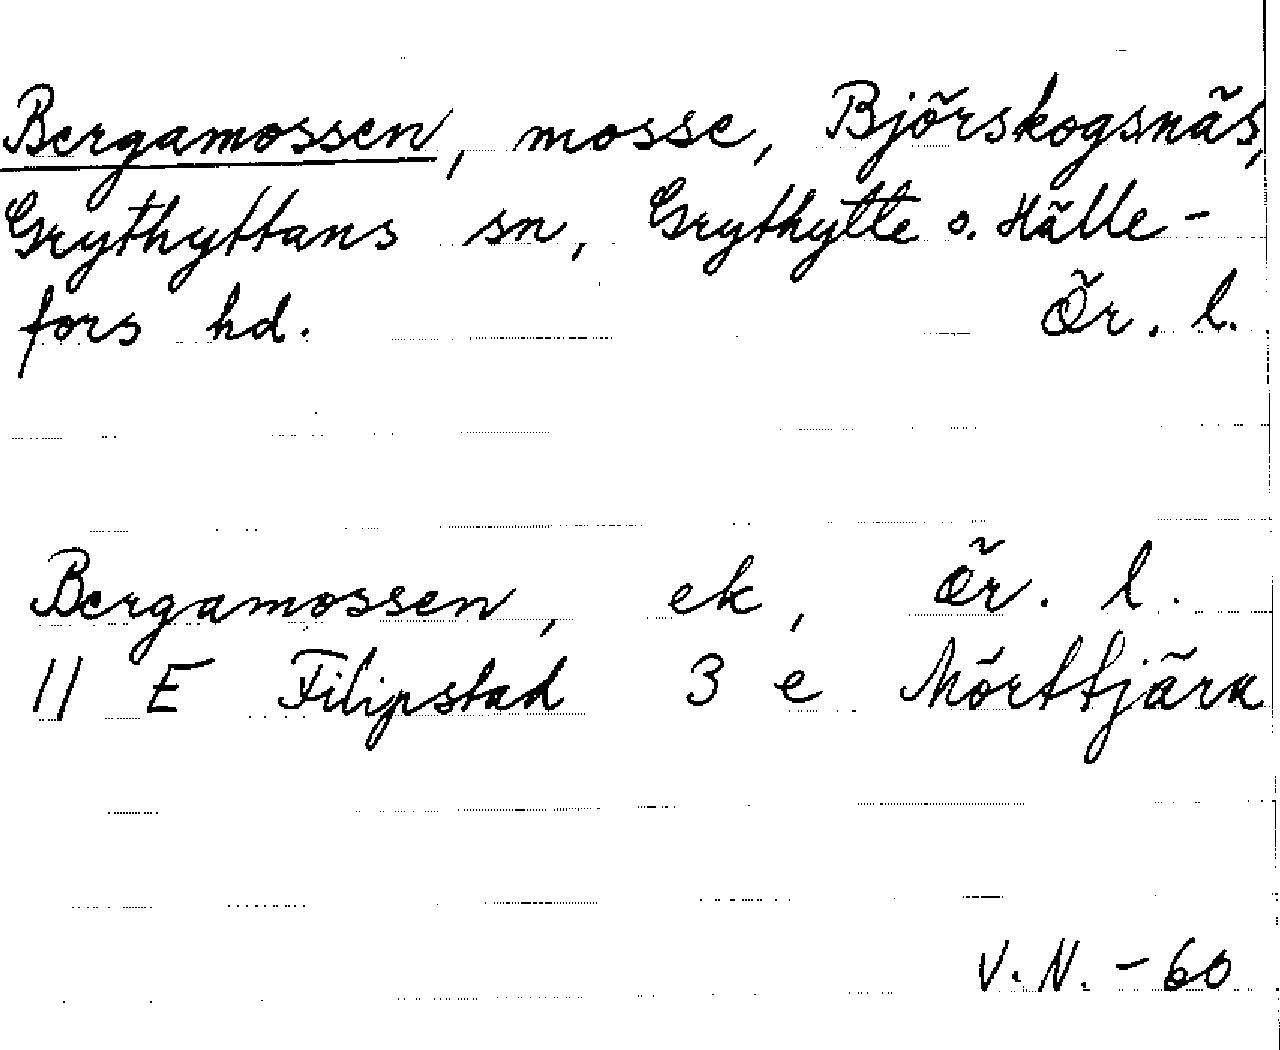 Bergamossen, mosse, Björskogsnäs,
Grythyttans sn, Grythytte o. Hälle-
fors hd. Ör. l.
Bergamossen, ek, Ör. l.
11 E Filipstad 3 e Mörttjärn
V.N. - 60